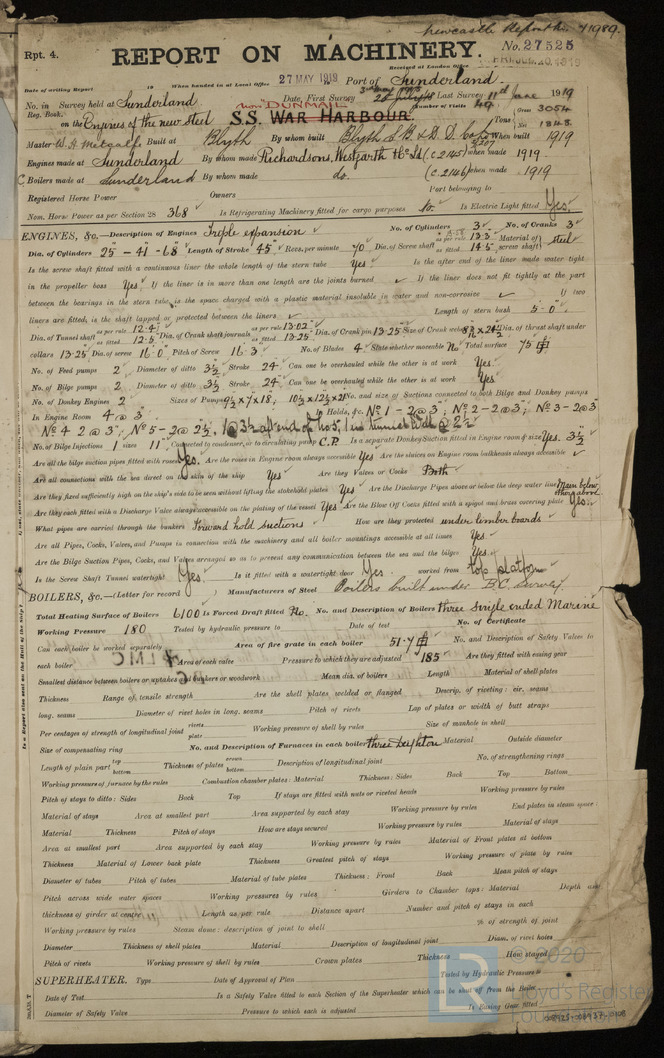 Newcastle Report No. 71989.
Rpt. 4.
REPORT ON MACHINERY.
No. 27525
Received at London Office
Date of writing Report 19 When handed in at Local Office 27 MAY 1919 Port of Sunderland.
No. in Survey held at Sunderland Date, First Survey Last Survey 11th June 1919
Reg. Book. Number of Visits 49
on the Engines of the new Steel S.S. WAR HARBOUR. now "DUNMAIL" Tons Gross 3054 Net 1848
Master W. A. Metcalf Built at Blyth By whom built Blyth S.B. & D.D. Co. Ld When built 1919
Engines made at Sunderland By whom made Richardsons, Westgarth & Co. Ld (c. 2145) when made 1919.
Boilers made at Sunderland By whom made do. (c. 2146) when made 1919
Registered Horse Power Owners Port belonging to
Nom. Horse Power as per Section 28 368 Is Refrigerating Machinery fitted for cargo purposes No. Is Electric Light fitted Yes.
ENGINES, &c.—Description of Engines Triple expansion No. of Cylinders 3 No. of Cranks 3
Dia. of Cylinders 25" - 41" - 68" Length of Stroke 45" Revs. per minute 70 Dia. of Screw shaft as per rule 13.3 as fitted 14.5" Material of screw shaft steel
Is the screw shaft fitted with a continuous liner the whole length of the stern tube Yes Is the after end of the liner made water tight
in the propeller boss Yes If the liner is in more than one length are the joints burned If the liner does not fit tightly at the part
between the bearings in the stern tube, is the space charged with a plastic material insoluble in water and non-corrosive If two
liners are fitted, is the shaft lapped or protected between the liners Length of stern bush 5'-0"
Dia. of Tunnel shaft as per rule 12.4" as fitted 12.5" Dia. of Crank shaft journals as per rule 13.02" as fitted 13.25" Dia. of Crank pin 13.25" Size of Crank webs Dia. of thrust shaft under
collars 13.25" Dia. of screw 16'.0" Pitch of Screw 16'.3" No. of Blades 4 State whether moveable No Total surface 75
No. of Feed pumps 2 Diameter of ditto 3½" Stroke 24" Can one be overhauled while the other is at work Yes
No. of Bilge pumps 2 Diameter of ditto 3½" Stroke 24" Can one be overhauled while the other is at work Yes
No. of Donkey Engines 2 Sizes of Pumps 9½ x 7 x 18; 10½ x 12½ x 21 No. and size of Suctions connected to both Bilge and Donkey pumps
In Engine Room 4 @ 3" In Holds, &c. No 1 - 2 @ 3"; No 2 - 2 @ 3"; No 3 - 2 @ 3"
No 4 2 @ 3"; No 5 - 2 @ 2½"; 1 @ 3½ aft end of No. 5; 1 in tunnel well @ 2½"
No. of Bilge Injections 1 size 11" Connected to condenser, or to circulating pump C.P. Is a separate Donkey Suction fitted in Engine room & size Yes. 3½"
Are all the bilge suction pipes fitted with roses Yes. Are the roses in Engine room always accessible Yes Are the sluices on Engine room bulkheads always accessible
Are all connections with the sea direct on the skin of the ship Yes Are they Valves or Cocks Both
Are they fixed sufficiently high on the ship's side to be seen without lifting the stokehold plates Yes Are the Discharge Pipes above or below the deep water line Main below others above
Are they each fitted with a Discharge Valve always accessible on the plating of the vessel Yes Are the Blow Off Cocks fitted with a spigot and brass covering plate Yes.
What pipes are carried through the bunkers Forward hold suctions How are they protected under limber boards
Are all Pipes, Cocks, Valves, and Pumps in connection with the machinery and all boiler mountings accessible at all times Yes.
Are the Bilge Suction Pipes, Cocks, and Valves arranged so as to prevent any communication between the sea and the bilges Yes.
Is the Screw Shaft Tunnel watertight Yes. Is it fitted with a watertight door Yes worked from top platform
BOILERS, &c.—(Letter for record ) Manufacturers of Steel Boilers built under B.C. Survey
Total Heating Surface of Boilers 6100 Is Forced Draft fitted No. No. and Description of Boilers three single ended Marine
Working Pressure 180 Tested by hydraulic pressure to Date of test No. of Certificate
Can each boiler be worked separately Area of fire grate in each boiler 51.7 No. and Description of Safety Valves to
each boiler Area of each valve Pressure to which they are adjusted 185 Are they fitted with easing gear
Smallest distance between boilers or uptakes and bunkers or woodwork Mean dia. of boilers Length Material of shell plates
Thickness Range of tensile strength Are the shell plates welded or flanged Descrip. of riveting: cir. seams
long. seams Diameter of rivet holes in long. seams Pitch of rivets Lap of plates or width of butt straps
Per centages of strength of longitudinal joint rivets plate Working pressure of shell by rules Size of manhole in shell
Size of compensating ring No. and Description of Furnaces in each boiler three Deighton Material Outside diameter
Length of plain part top bottom Thickness of plates crown bottom Description of longitudinal joint No. of strengthening rings
Working pressure of furnace by the rules Combustion chamber plates: Material Thickness: Sides Back Top Bottom
Pitch of stays to ditto: Sides Back Top If stays are fitted with nuts or riveted heads Working pressure by rules
Material of stays Area at smallest part Area supported by each stay Working pressure by rules End plates in steam space:
Material Thickness Pitch of stays How are stays secured Working pressure by rules Material of stays
Area at smallest part Area supported by each stay Working pressure by rules Material of Front plates at bottom
Thickness Material of Lower back plate Thickness Greatest pitch of stays Working pressure of plate by rules
Diameter of tubes Pitch of tubes Material of tube plates Thickness: Front Back Mean pitch of stays
Pitch across wide water spaces Working pressures by rules Girders to Chamber tops: Material Depth and
thickness of girder at centre Length as per rule Distance apart Number and pitch of stays in each
Working pressure by rules Steam dome: description of joint to shell % of strength of joint
Diameter Thickness of shell plates Material Description of longitudinal joint Diam. of rivet holes
Pitch of rivets Working pressure of shell by rules Crown plates Thickness How stayed
SUPERHEATER. Type Date of Approval of Plan Tested by Hydraulic Pressure to
Date of Test Is a Safety Valve fitted to each Section of the Superheater which can be shut off from the Boiler
Diameter of Safety Valve Pressure to which each is adjusted Is Easing Gear fitted
© 2020
Lloyd's Register
Foundation